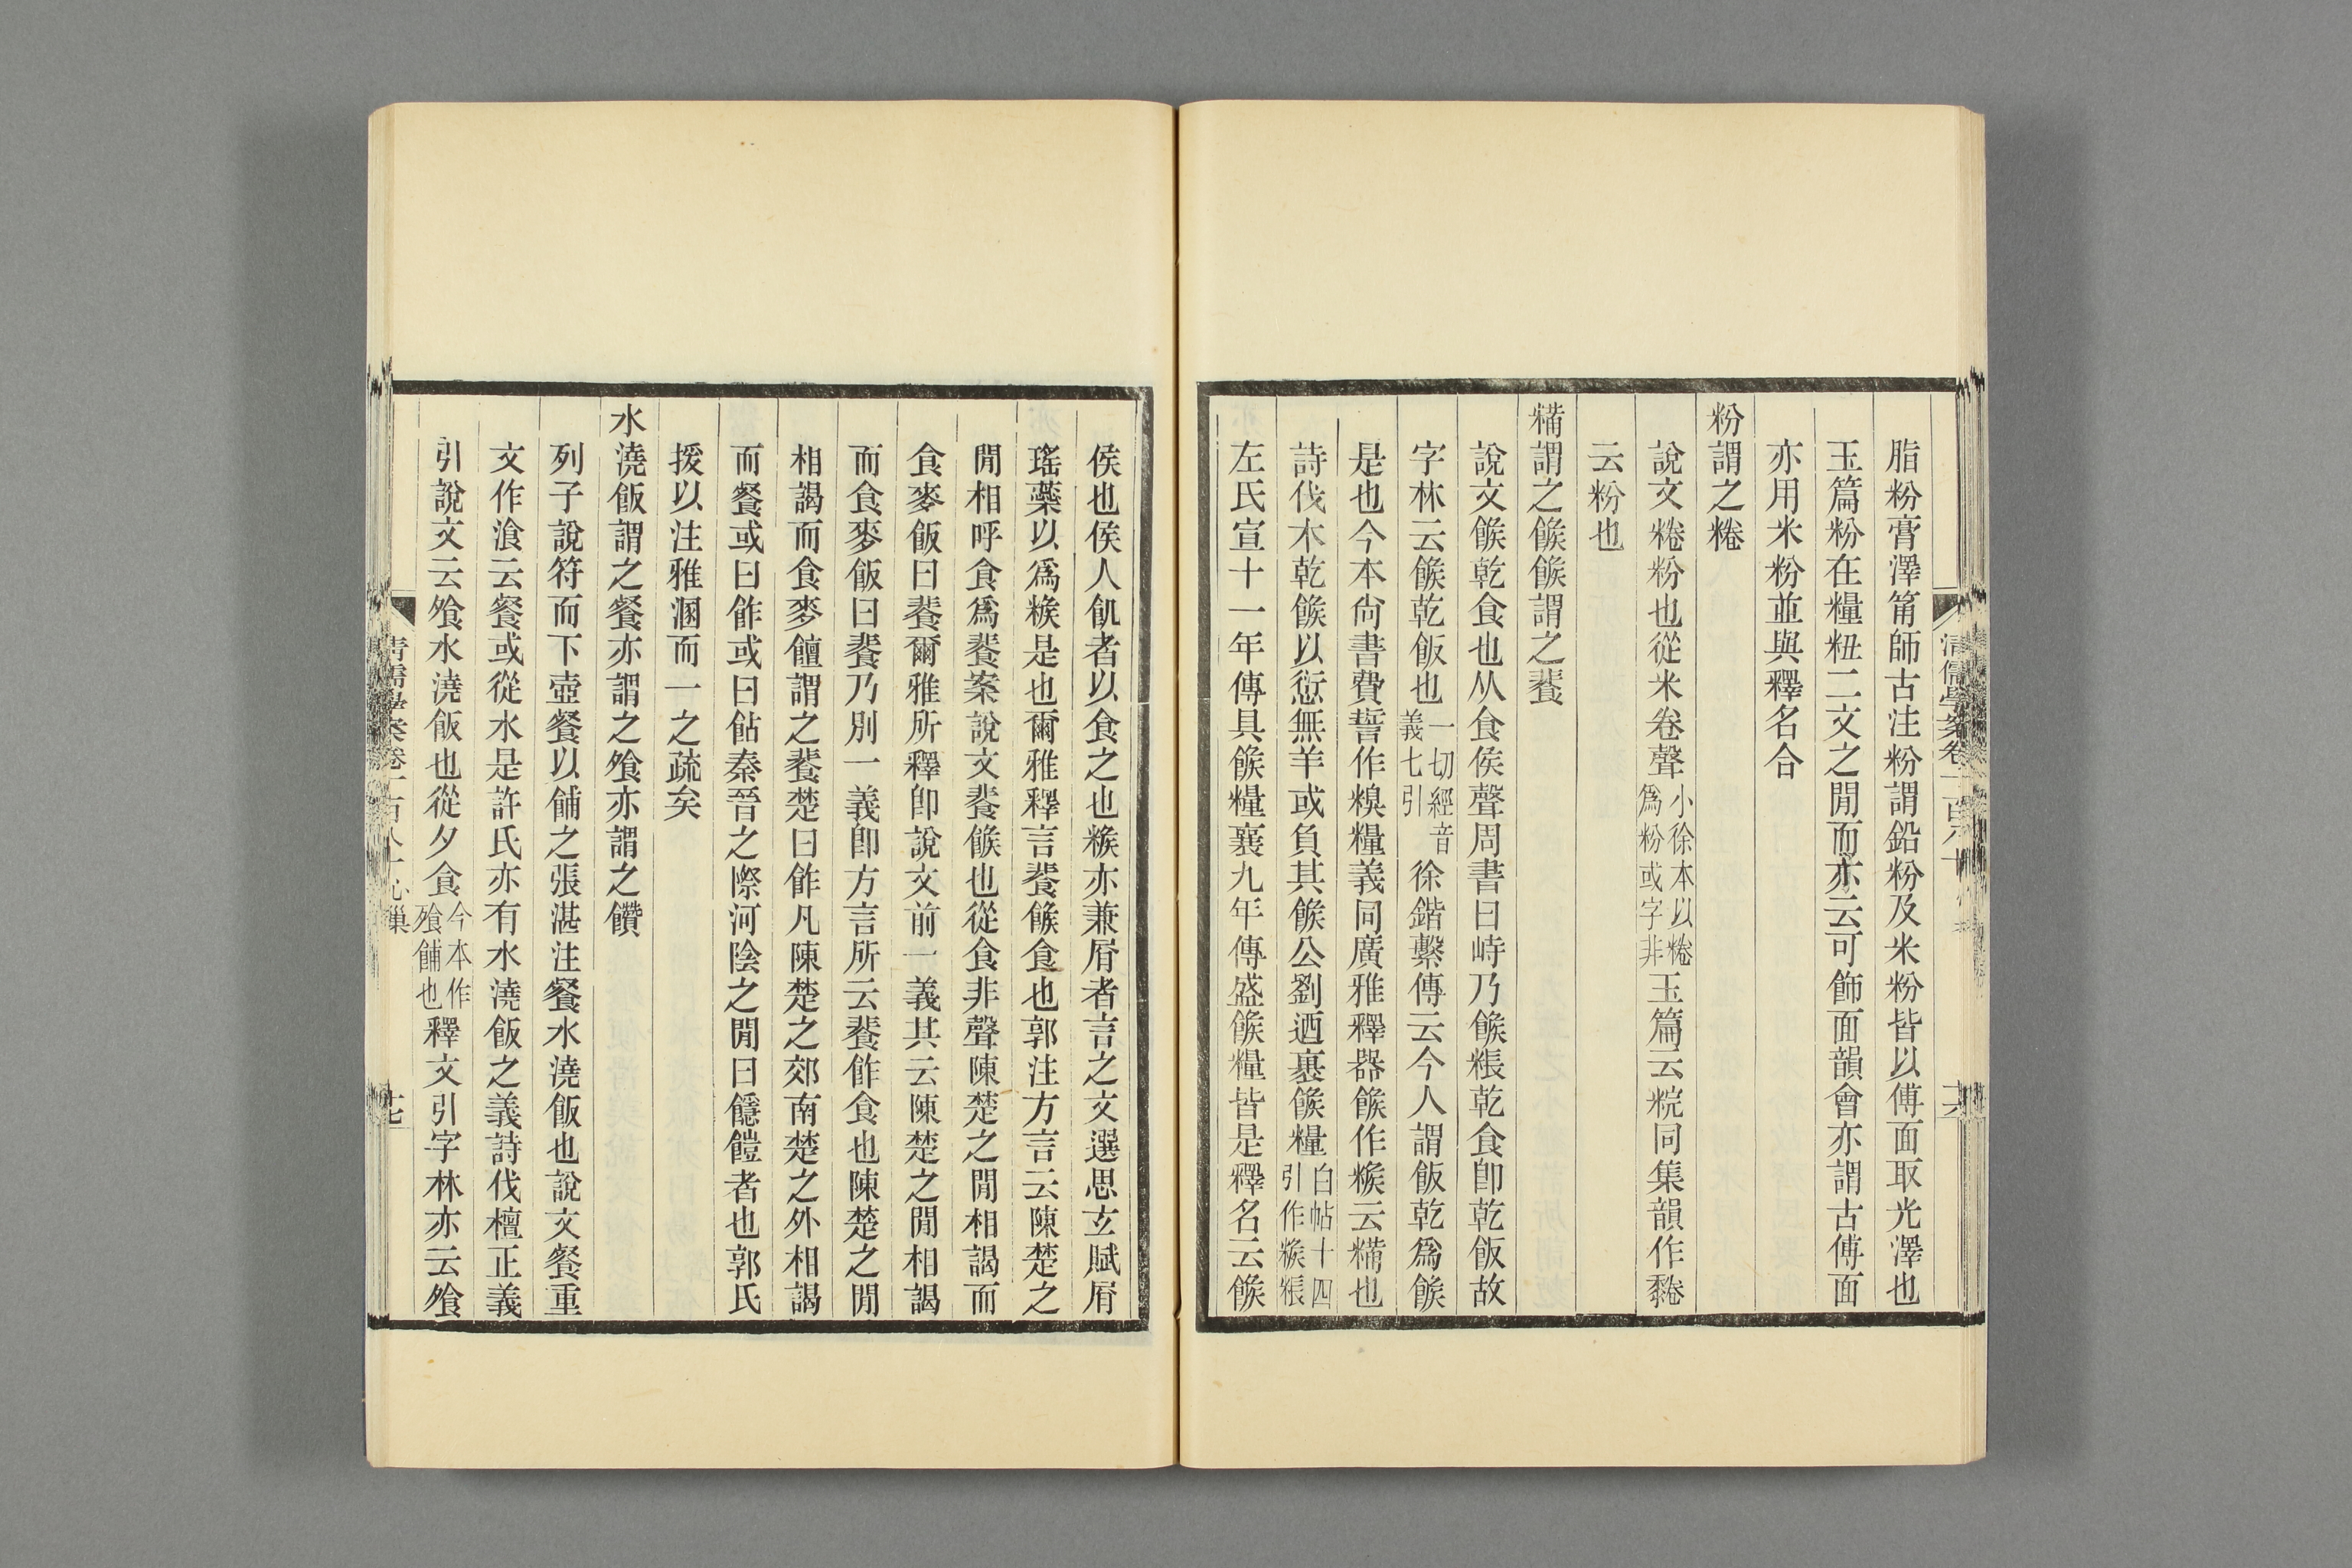 脂粉膏澤筩師古注粉謂鉛粉及米粉皆以傅面取光澤也
玉篇粉在糧粈二文之閒而亦云可飾面韻會亦謂古傅面
亦用米粉並與釋名合
粉謂之䊎
說文䊎粉也從米卷聲小徐本以䊎爲粉或字非玉篇云粇同集韻作䵤
云粉也
糒謂之餱餱謂之餥
說文餱乾食也从食侯聲周書曰峙乃餱粻乾食卽乾飯故
字林云餱乾飯也一切經音義七引徐鍇繫傳云今人謂飯乾爲餱
是也今本尙書費誓作糗糧義同廣雅釋器餱作糇云糒也
詩伐木乾餱以愆無羊或負其餱公劉迺裹餱糧白帖十四引作糇粻
左氏宣十一年傳具餱糧襄九年傳盛餱糧皆是釋名云餱
侯也侯人飢者以食之也糇亦兼屑者言之文選思玄賦屑
瑤蘂以爲糇是也爾雅釋言餥餱食也郭注方言云陳楚之
閒相呼食爲餥案說文餥餱也從食非聲陳楚之閒相謁而
食麥飯曰餥爾雅所釋卽說文前一義其云陳楚之閒相謁
而食麥飯曰餥乃別一義卽方言所云餥飵食也陳楚之閒
相謁而食麥饘謂之餥楚曰飵凡陳楚之郊南楚之外相謁
而餐或曰飵或曰䬯秦晉之際河陰之閒曰䭡皚者也郭氏
援以注雅溷而一之疏矣
水澆飯謂之餐亦謂之飧亦謂之饡
列子說符而下壺餐以餔之張湛注餐水澆飯也說文餐重
文作湌云餐或從水是許氏亦有水澆飯之義詩伐檀正義
引說文云飧水澆飯也從夕食今本作飱餔也釋文引字林亦云飧